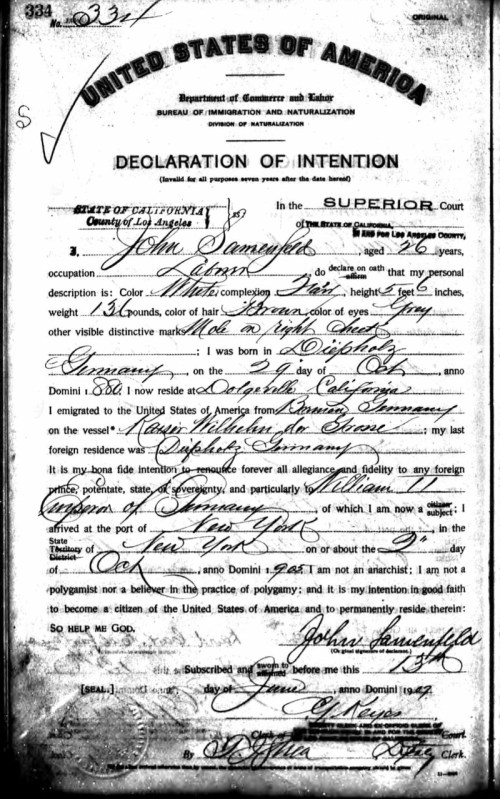 334
No. 334
ORIGINAL
UNITED STATES OF AMERICA
Department of Commerce and Labor
BUREAU OF IMMIGRATION AND NATURALIZATION
DIVISION OF NATURALIZATION
DECLARATION OF INTENTION
(Invalid for all purposes seven years after the date hereof)
STATE OF CALIFORNIA
County of Los Angeles
ss: In the SUPERIOR Court
of THE STATE OF CALIFORNIA,
IN AND FOR LOS ANGELES COUNTY,
I, John Samenfeld, aged 26 years,
occupation Laborer, do declare on oath affirm that my personal
description is: Color White, complexion Fair, height 5 feet 6 inches,
weight 136 pounds, color of hair Brown, color of eyes Grey
other visible distinctive marks Mole on right cheek
; I was born in Diepholz
Germany, on the 29 day of Oct, anno
Domini 1880. I now reside at Dolgeville California
I emigrated to the United States of America from Bremen Germany
on the vessel Kaiser Wilhelm der Grosse; my last
foreign residence was Diepholz Germany
It is my bona fide intention to renounce forever all allegiance and fidelity to any foreign
prince, potentate, state, or sovereignty, and particularly to William II
Emperor of Germany, of which I am now a citizen subject; I
arrived at the port of New York, in the
State Territory District of New York on or about the 2" day
of Oct, anno Domini 1903. I am not an anarchist; I am not a
polygamist nor a believer in the practice of polygamy; and it is my intention in good faith
to become a citizen of the United States of America and to permanently reside therein:
SO HELP ME GOD.
John Samenfeld
(Original signature of declarant.)
Subscribed and sworn to affirmed before me this 13th
[SEAL.] day of June, anno Domini 1907.
C G Keyes
Clerk Court.
By Shea Deputy Clerk.